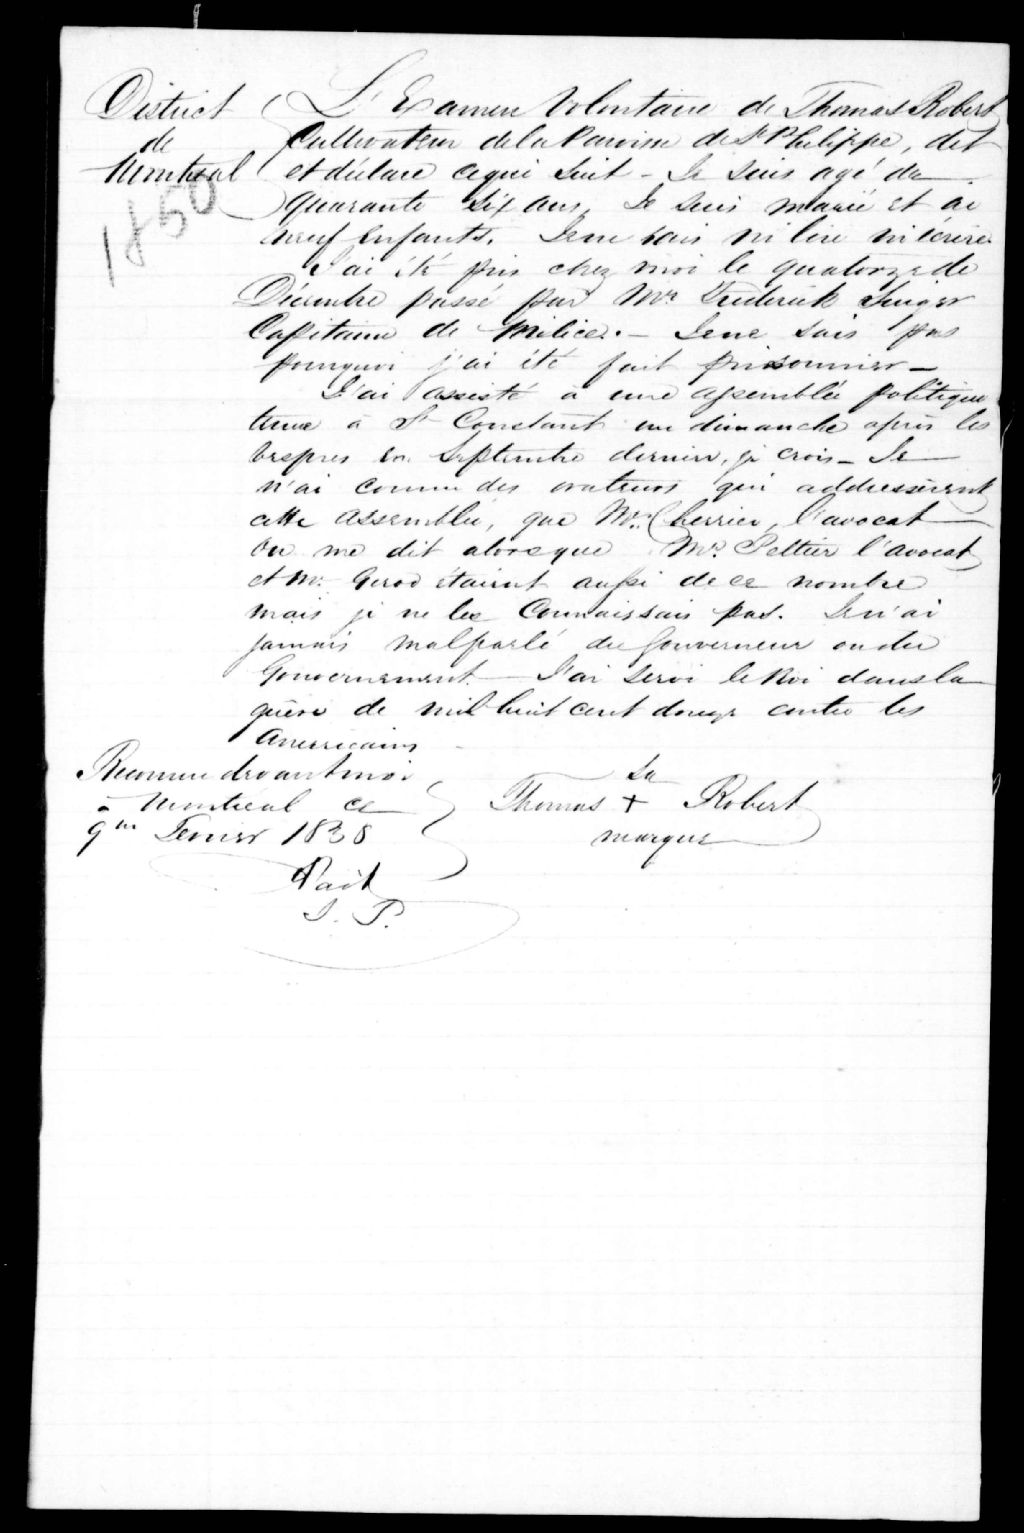 District
de
Montreal
1850
L'Examen Volontaire de Thomas Robert
Cultivateur de la Paroisse de St Philippe, dit
et déclare ce qui suit - Je suis agé de
quarante six ans, Je suis marié et ai
neuf enfants. Je ne sais ni lire ni écrire
J'ai été pris chez moi le quatorze de
Décembre passé par Mr Frederick Singer
Capitaine de Milice. - Je ne sais pas
pourquoi j'ai été fait prisonnier -
J'ai assisté à une assemblée politique
tenue à St Constant un dimanche après les
vespres en Septembre dernier, je crois - Je
n'ai connu des orateurs qui addressèrent
cette assemblée, que Mr. Cherrier, l'avocat
On me dit alors que Mr. Peltier l'avocat
et Mr. Girod étaient aussi de ce nombre
mais je ne les connaissais pas. Je n'ai
jamais mal parlé du Gouverneur ou du
Gouvernement - J'ai servi le Roi dans la
guère de mil huit cent douze contre les
Americains
Reconnu devant moi
à Montreal ce
9me Fevrier 1838
sa
Thomas + Robert
marque
J. P.